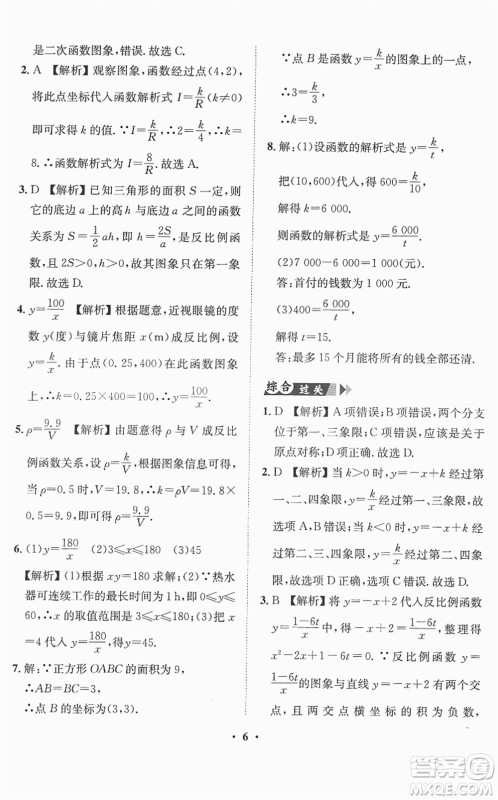 是二次函数图象,错误. 故选 C.
2. A 【解析】观察图象,函数经过点(4,2),
将此点坐标代入函数解析式 I=k/R(k≠0)
即可求得 k 的值. ∵I=k/R,∴2=k/4,∴k=
8. ∴函数解析式为 I=8/R. 故选 A.
3. D 【解析】已知三角形的面积 S 一定,则
它的底边 a 上的高 h 与底边 a 之间的函数
关系为 S=1/2ah,即 h=2S/a,是反比例函
数,且 2S>0,h>0. 故其图象只在第一象
限. 故选 D.
4. y=100/x 【解析】根据题意,近视眼镜的度
数 y(度)与镜片焦距 x(m)成反比例,设
y=k/x. 由于点(0.25,400)在此函数的图象
上,∴k=0.25×400=100,∴y=100/x.
5. ρ=9.9/V 【解析】由题意得 ρ 与 V 成反比
例函数关系,设 ρ=k/V. 根据图象信息可得
当 ρ=0.5 时,V=19.8,∴k=ρV=19.8×
0.5=9.9,即可得 ρ=9.9/V.
6. (1)y=180/x (2)3≤x≤180 (3)45
【解析】根据 xy=180 求解;(2)∵热水
器可连续工作的最长时间为 1 小时,0≤y≤
60,∴x 的取值范围是 3≤x≤180;(3)把 y
=4 代入 y=180/x,得 x=45.
7. 解:∵正方形 OABC 的面积为 9,
∴AB=BC=3,
∴点 B 的坐标为(3,3).
∵点 B 是函数 y=k/x 的图象上的一点,
∴3=k/3,
∴k=9.
8. 解:(1)设函数的解析式是 y=k/t,
把(10,600)代入,得 600=k/10,
解得 k=6 000,
则函数的解析式是 y=6 000/t.
(2)7 000-6 000=1 000(元).
答:首付的钱数为 1 000 元.
(3)400=6 000/t,
解得 t=15.
答:最多 15 个月能将所有的钱全部还清.
综合过关
1. D 【解析】A 项错误;B 项错误,两个分支
位于第一、三象限;C 项错误,应该是关于
原点对称;D 正确. 故选 D.
2. D 【解析】当 k>0 时,y=-x+k 经过第
一、二、四象限,y=k/x 经过第一、三象限,故
选项 A、B 错误;当 k<0 时,y=-x+k 经
过第二、三、四象限,y=k/x 经过第二、四象
限,故选项 C 错误,选项 D 正确. 故选 D.
3. B 【解析】将 y=-x+2 代入反比例函数
y=(1-6t)/x 中,得-x+2=(1-6t)/x,整理,得
x²-2x+1-6t=0. ∵反比例函数 y=
(1-6t)/x 的图象与直线 y=-x+2 有两个交
点,且两交点横坐标的积为负数,
• 6 •